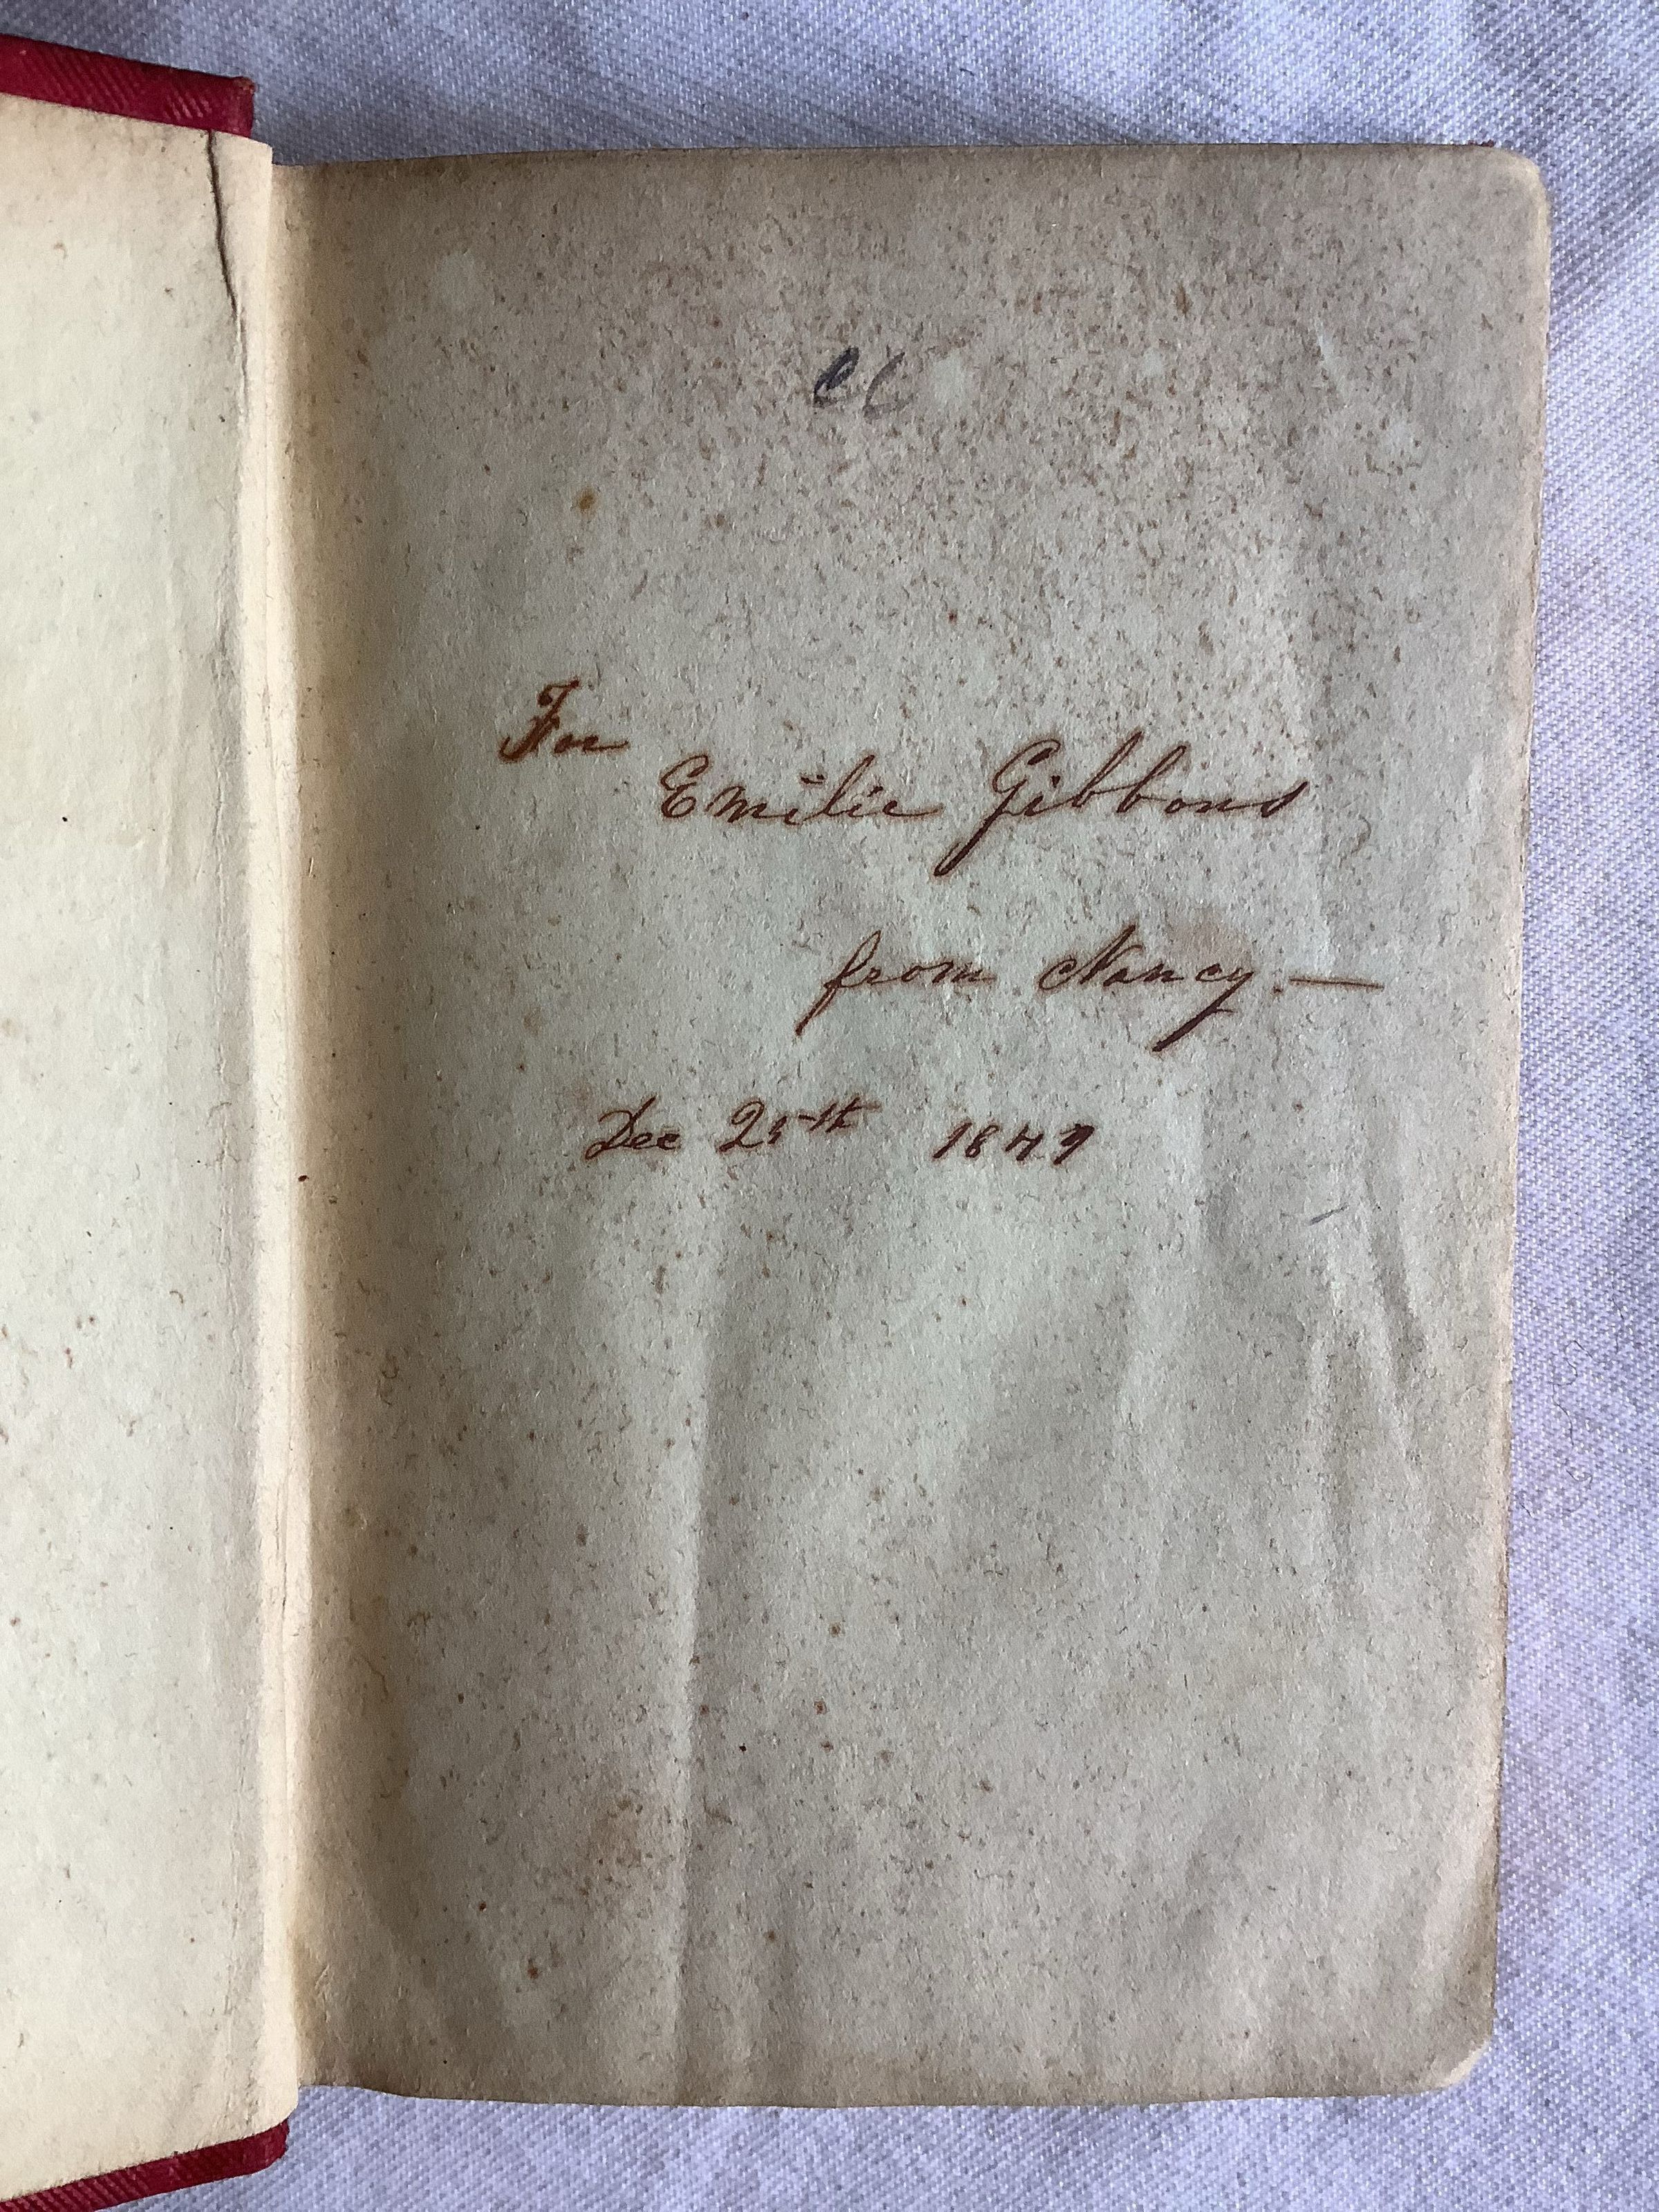 ec
For
Emilie Gibbons
from Nancy. —
Dec 25th 1879